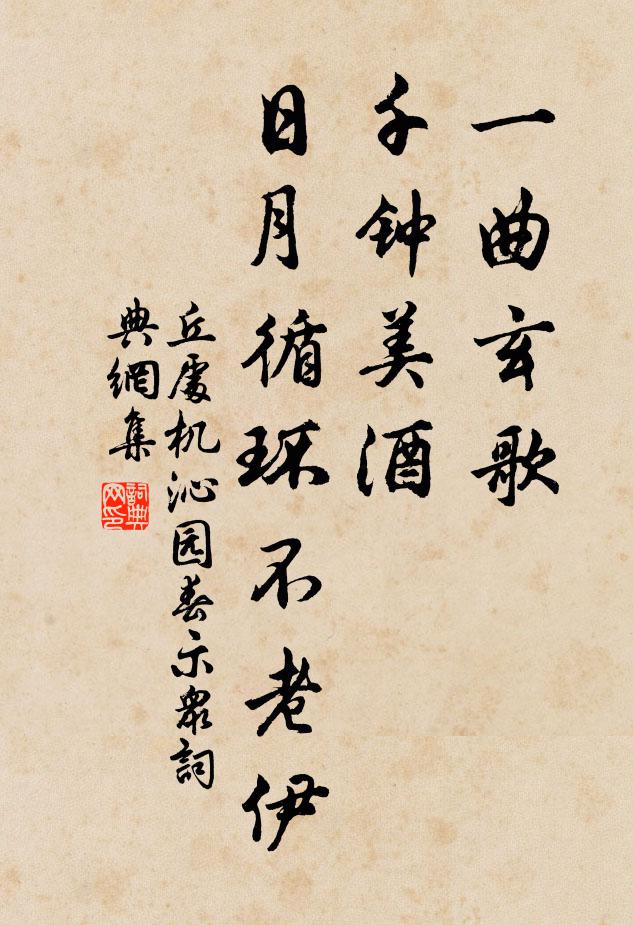 一曲玄歌
千钟美酒
日月循环不老伊
丘處机沁园春示眾詞
典網集
詞典
网印